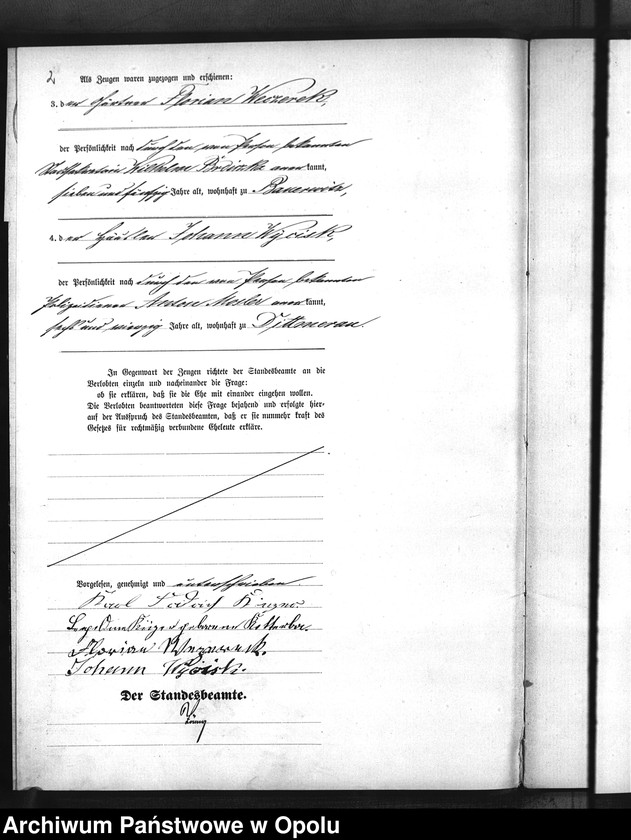 2
Als Zeugen waren zugezogen und erschienen:
3. der Gärtner Florian Weczerek,
der Persönlichkeit nach durch den von Person bekannten
Wilhelm anerkannt,
sieben und fünfzig Jahre alt, wohnhaft zu Bauerwitz,
4. der Häusler Johann Wycisk,
der Persönlichkeit nach durch den von Person bekannten
Polizeidiener Anton Mosler anerkannt,
sechs und vierzig Jahre alt, wohnhaft zu Dittmerau.
In Gegenwart der Zeugen richtete der Standesbeamte an die
Verlobten einzeln und nacheinander die Frage:
ob sie erklären, daß sie die Ehe mit einander eingehen wollen.
Die Verlobten beantworteten diese Frage bejahend und erfolgte hier-
auf der Ausspruch des Standesbeamten, daß er sie nunmehr kraft des
Gesetzes für rechtmäßig verbundene Eheleute erkläre.
Vorgelesen, genehmigt und unterschrieben
Karl
geborene Kotterba.
Florian Wezereck.
Johann Wycisk.
Der Standesbeamte.
Archiwum Państwowe w Opolu